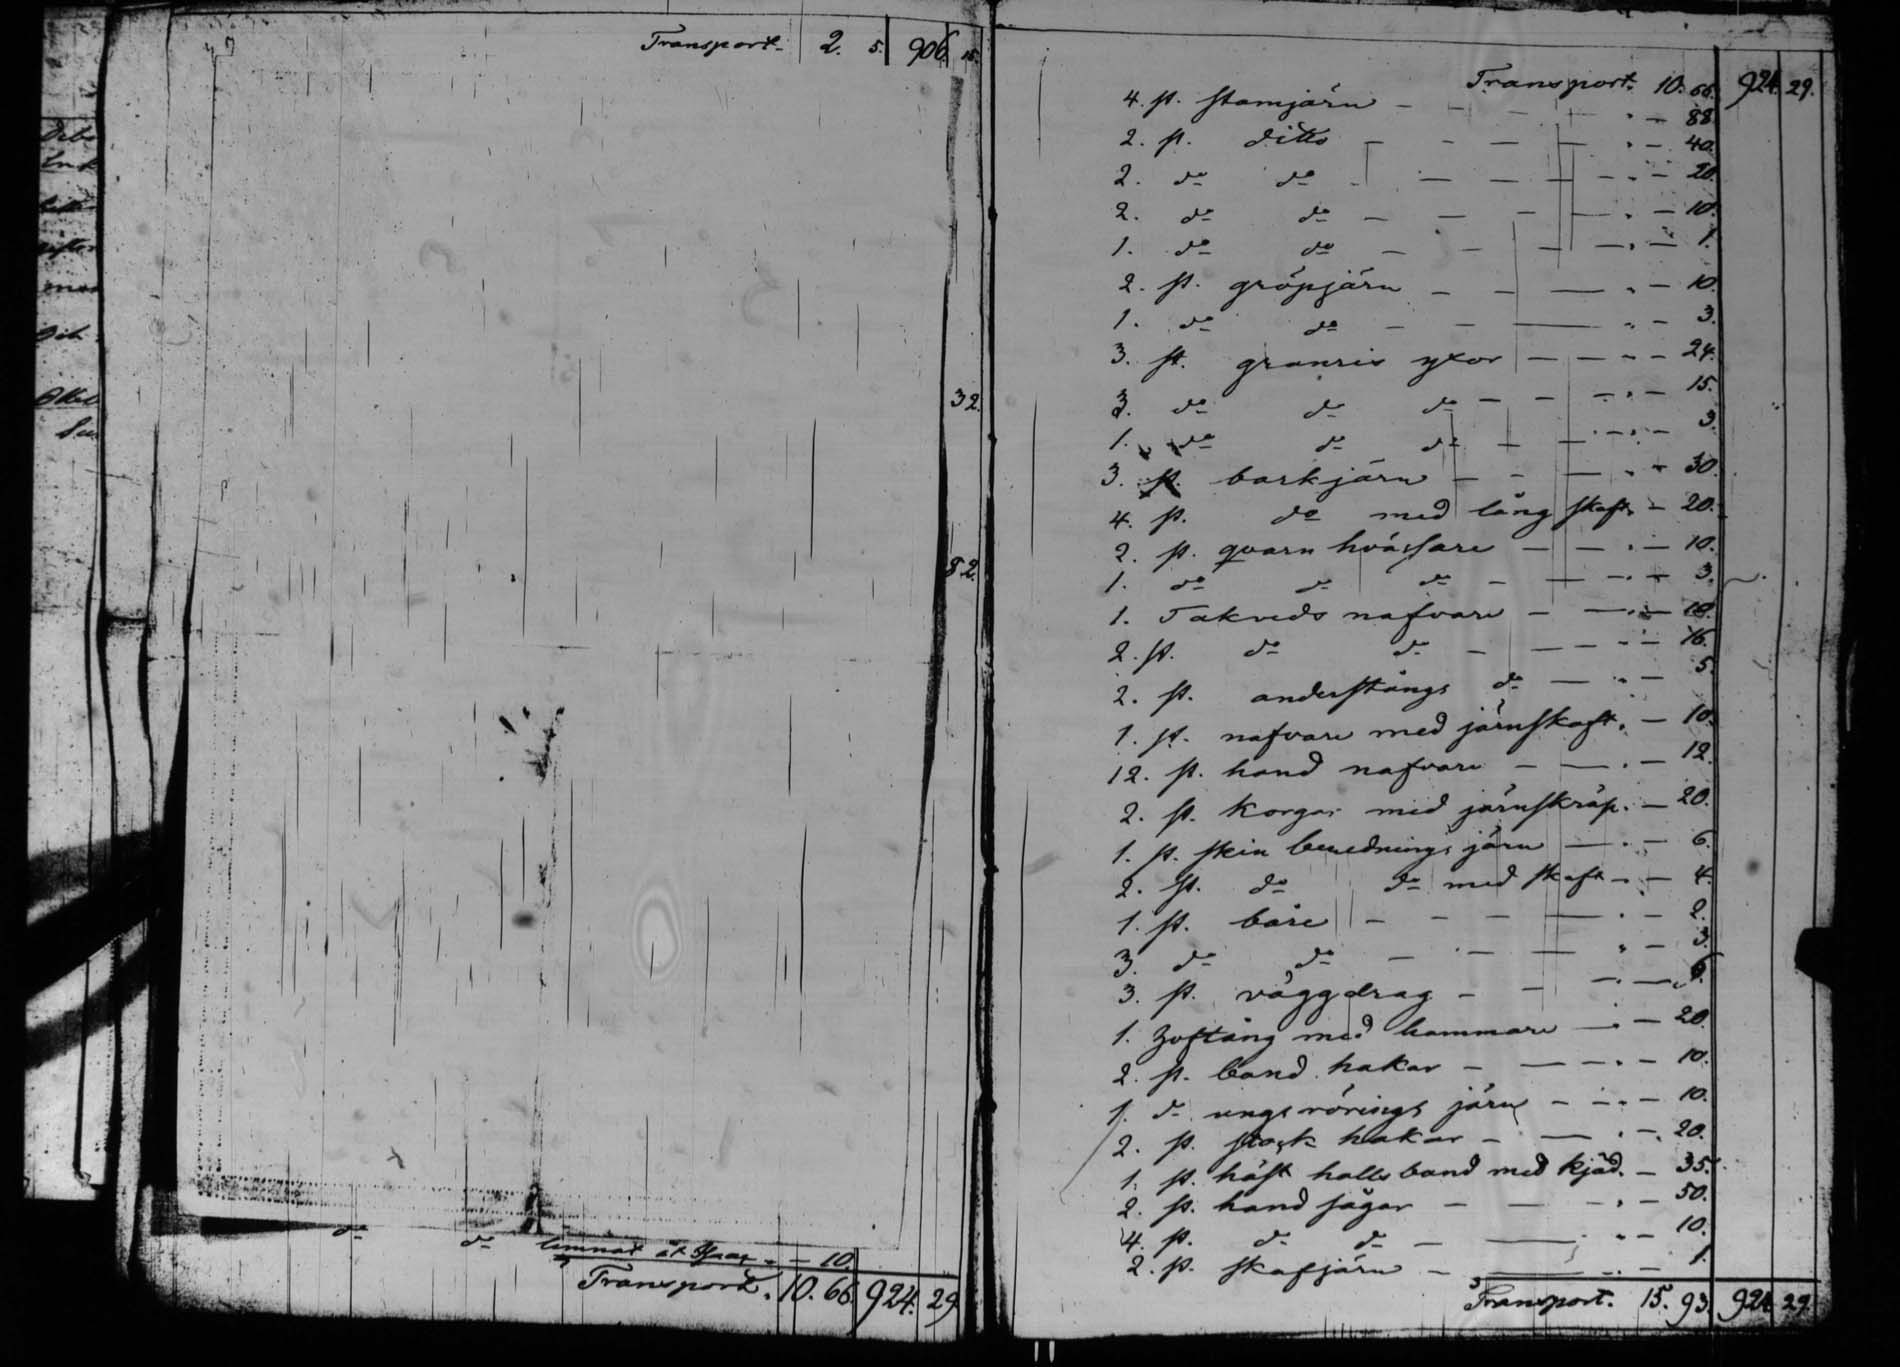 Transport. 2. 5. 906. 15.
32.
82.
do do lemnat åt Isaac - - 10.
Transport. 10. 66. 924. 29.
Transport. 10. 66. 924. 29.
4. st. stamjärn - - - - - 88.
2. st. ditto - - - - - 40.
2. do do - - - - - 20.
2. do do - - - - - 10.
1. do do - - - - - 1.
2. st. gröpjärn - - - - 10.
1. do do - - - - 3.
3. st. granris yxor - - - - 24.
3. do do do - - - - 15.
1. do do do - - - - 3.
3. st. barkjärn - - - - 30.
4. st. do med lång skaft. - 20.
2. st. qvarn hvässare - - - 10.
1. do do do - - - - 3.
1. Takveds nafvare - - - 10.
2. st. do do - - - - 16.
2. st. anderstångs do - - - 5.
1. st. nafvare med järnskaft. - 10.
12. st. hand nafvare - - - 12.
2. st. korgar med järnskräp. - 20.
1. st. skin berednings järn - - 6.
2. st. do do med skaft - - 4.
1. st. bäre - - - - - 2.
3. do do - - - - - 3.
3. st. väggdrag - - - - 6.
1. Hoftång med hammare - - 20.
2. st. band hakar - - - - 10.
1. do ungsrörings järn - - - 10.
2. st. stock hakar - - - - 20.
1. st. häst halls band med kjäd. - 35.
2. st. hand sågar - - - - 50.
4. st. do do - - - - 10.
2. st. skafjärn - - - - 1.
Transport. 15. 93. 924. 29.